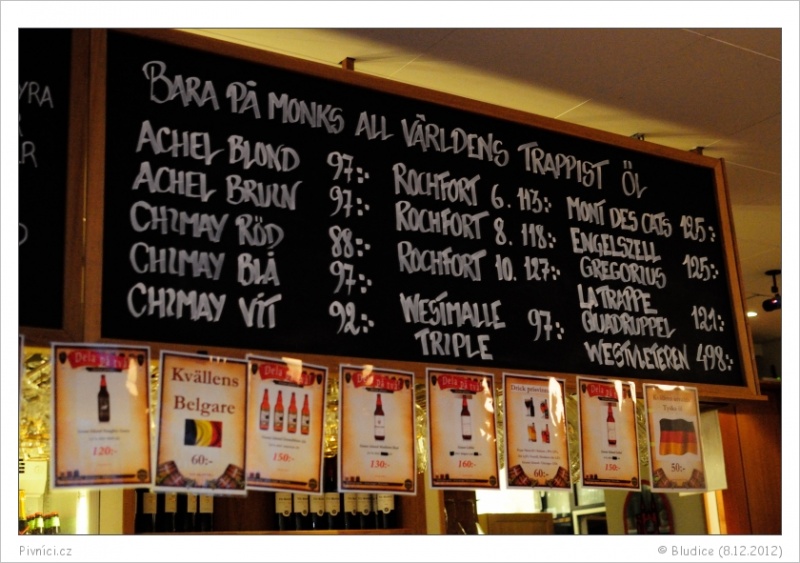 YRA
BARA PÅ MONKS ALL VÄRLDENS TRAPPIST ÖL
ACHEL BLOND 97:-
ACHEL BRUIN 97:-
CHIMAY RÖD 88:-
CHIMAY BLÅ 97:-
CHIMAY VIT 92:-
ROCHFORT 6. 113:-
ROCHFORT 8. 118:-
ROCHFORT 10. 127:-
WESTMALLE
TRIPLE 97:-
MONT DES CATS 125:-
ENGELSZELL
GREGORIUS 125:-
LA TRAPPE
QUADRUPPEL 121:-
WESTVLETEREN 498:-
Dela på två
120:-
Kvällens
Belgare
60:-
Dela på två
150:-
Dela på två
130:-
Dela på två
160:-
60:-
Dela på två
150:-
50:-
Pivníci.cz
© Bludice (8.12.2012)